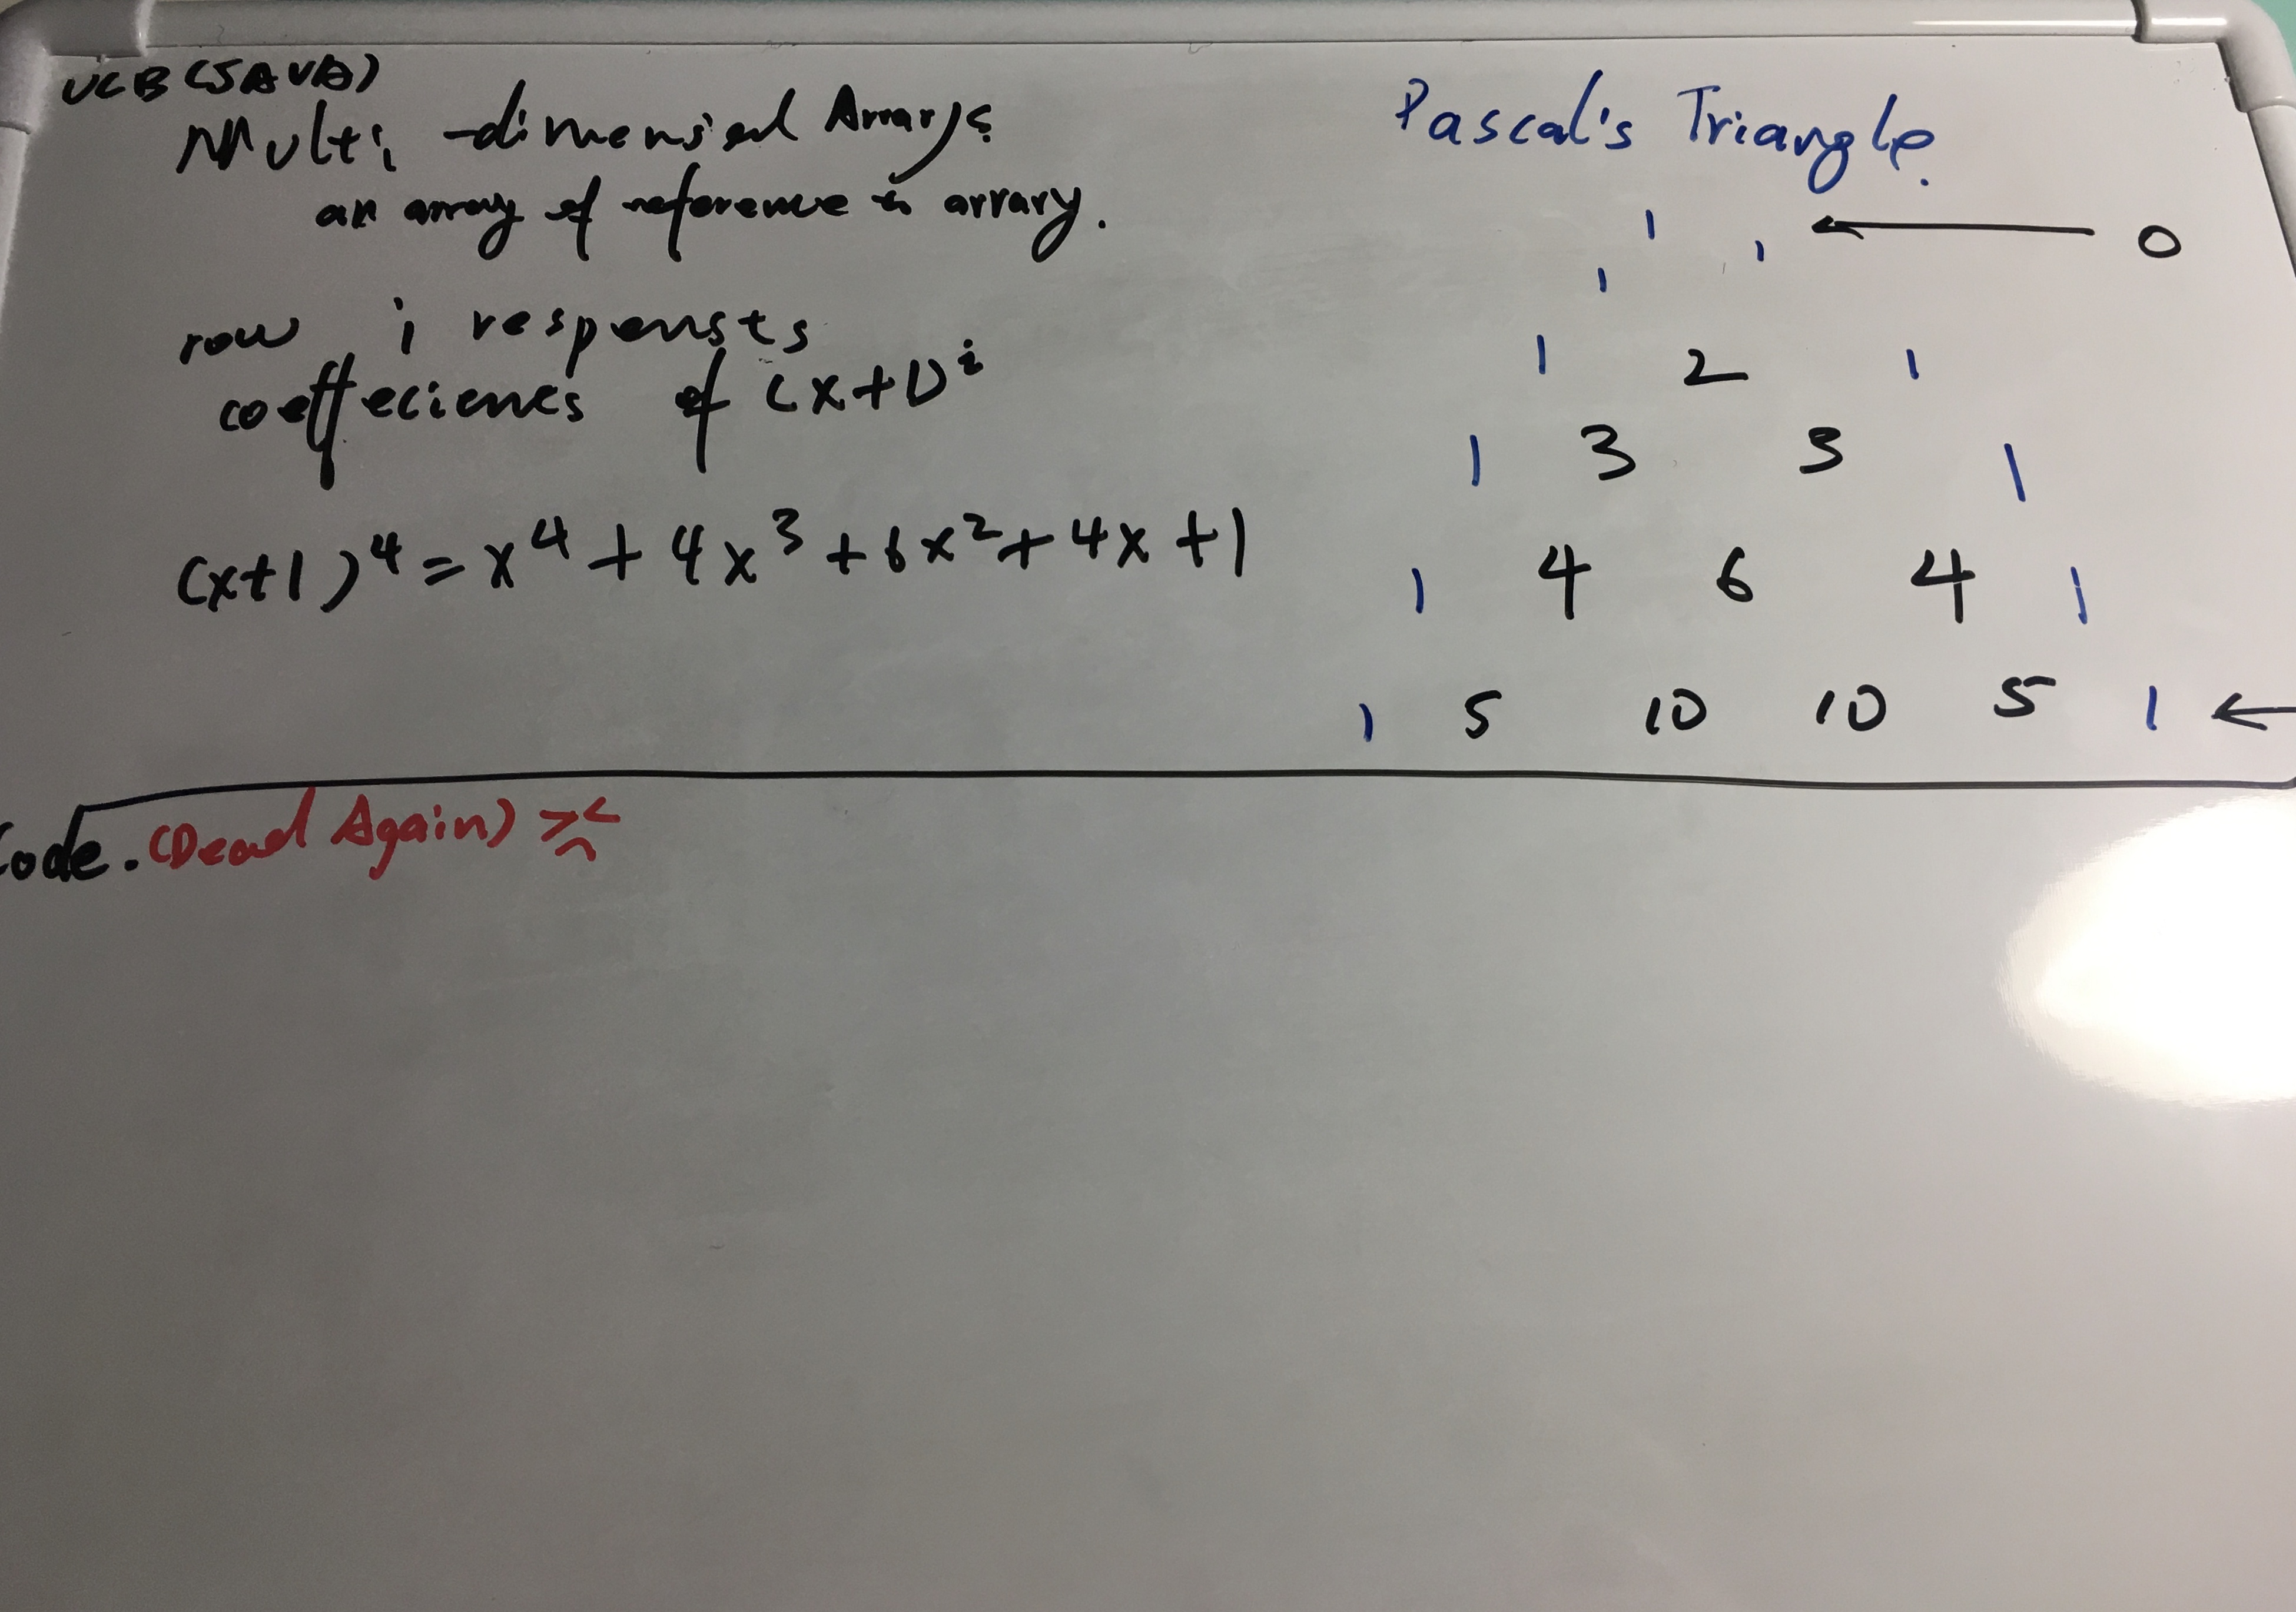 UCB (JAVA)
Multi-dimensional Arrays
an array of reference to arrary.
row i responsts
coeffecienes of (x+1)^i
(x+1)^4 = x^4 + 4x^3 + 6x^2 + 4x + 1
Pascal's Triangle.
1 ← 0
1 1
1 2 1
1 3 3 1
1 4 6 4 1
1 5 10 10 5 1 ←
Code. (Dead Again)